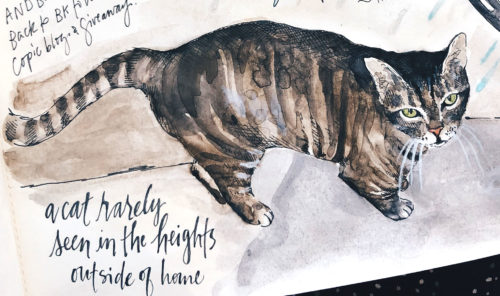 AND B
Back to BK
Copic blog & Giveaway.
a cat rarely
seen in the heights
outside of home